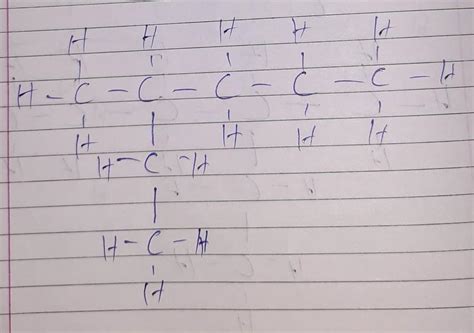 H H H H H
H - C - C - C - C - C - H
H H H H
H - C - H
H - C - H
H